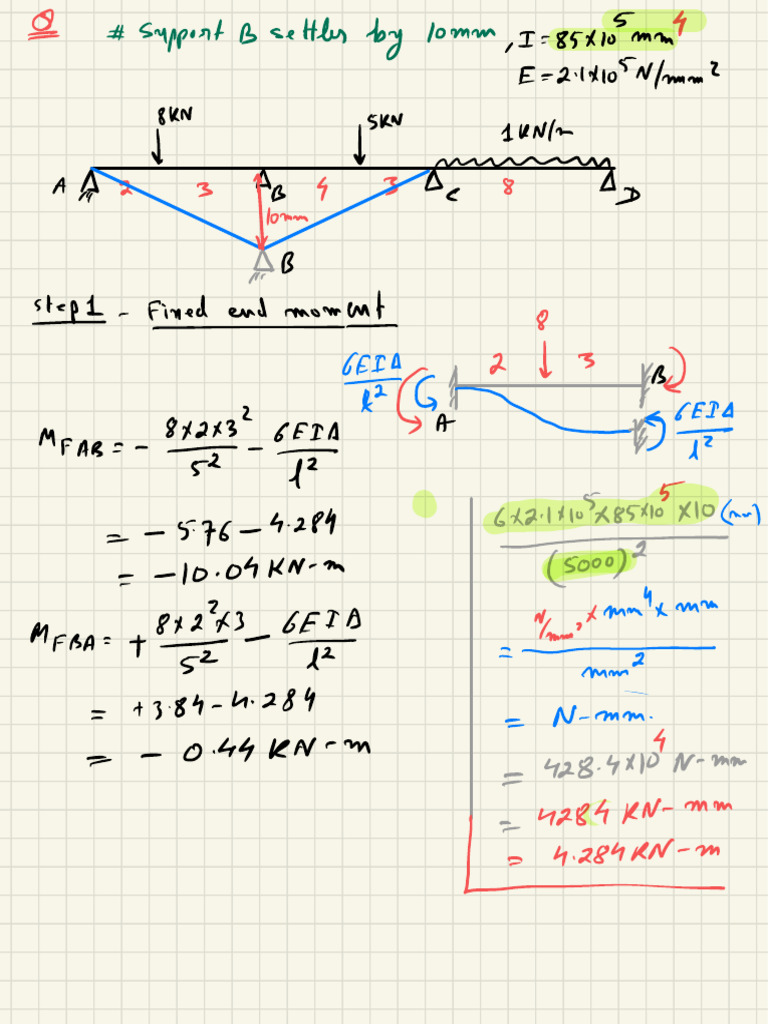 Q # Support B settles by 10mm, I = 85×10⁵ mm⁴
E = 2.1×10⁵ N/mm²
8KN 5KN 1KN/m
A 2 3 B 4 3 C 8 D
10mm
B
Step 1 - Fixed end moment
8
6EIΔ/l² 2 3 B
A 6EIΔ/l²
M_FAB = - 8×2×3²/5² - 6EIΔ/l²
= - 5.76 - 4.284
= - 10.04 KN-m
M_FBA = + 8×2²×3/5² - 6EIΔ/l²
= + 3.84 - 4.284
= - 0.44 KN-m
6×2.1×10⁵×85×10⁵×10 (mm)/(5000)²
= N/mm² × mm⁴ × mm/mm²
= N-mm.
= 428.4×10⁴ N-mm
= 4284 KN-mm
= 4.284 KN-m